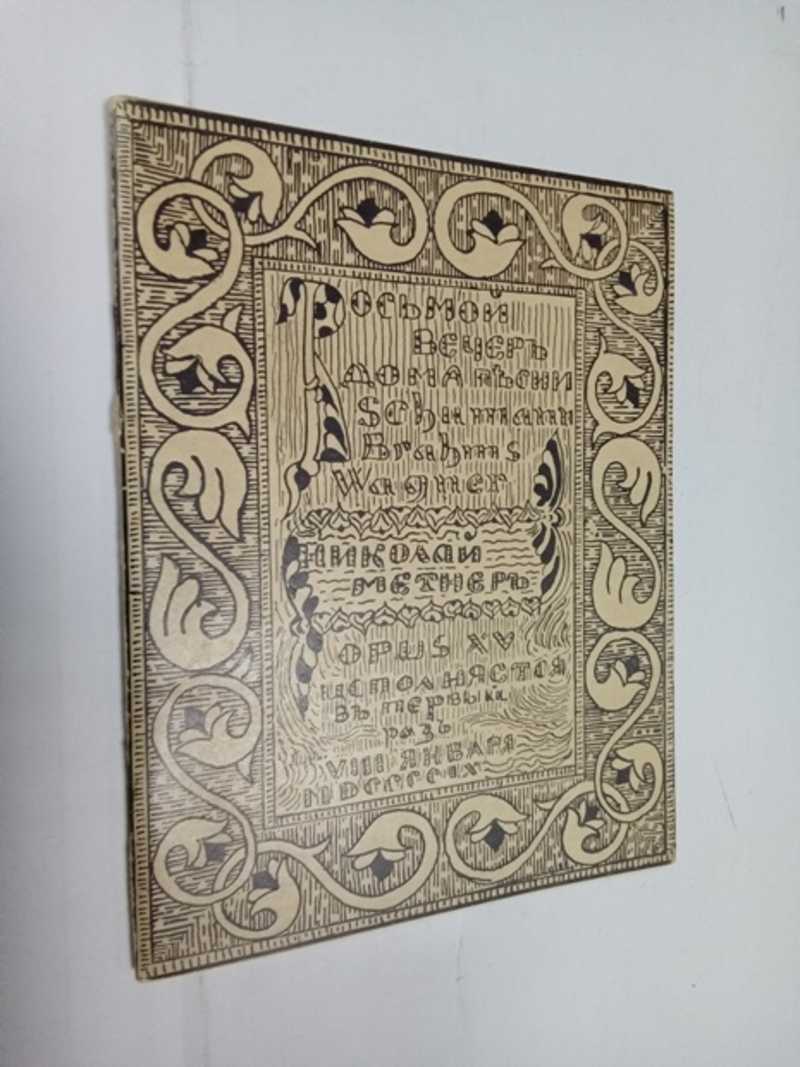 Восьмой
вечеръ
дома пѣсни
Schumann
Brahms
Wagner
Николай
Метнеръ
Opus XV
исполняется
въ первый
разъ
VIII января
MDCCCCIX